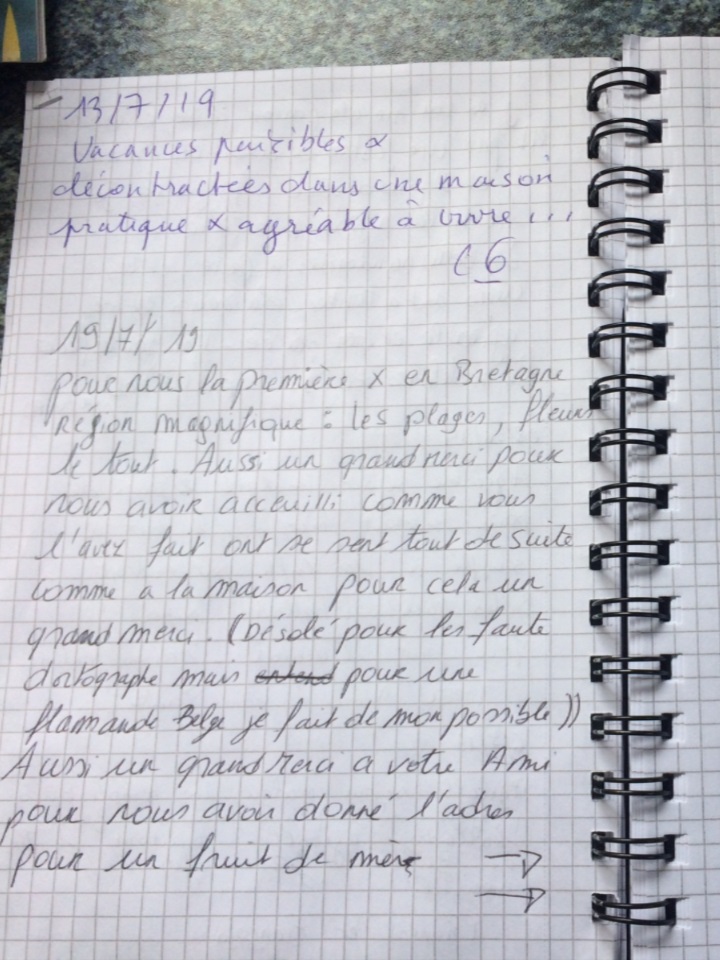 13/7/19
Vacances paisibles &
décontractées dans une maison
pratique & agréable à vivre ...
19/7/19
pour nous la première x en Bretagne
Région magnifique : les plages, fleurs
le tout. Aussi un grand merci pour
nous avoir acceuilli comme vous
l'avez fait ont se sent tout de suite
comme a la maison pour cela un
grand merci. (Désolé pour les faute
dortographe mais pour une
flamande Belge je fait de mon possible))
Aussi un grand merci a votre Ami
pour nous avoir donné l'adres
pour un fruit de mère →
→